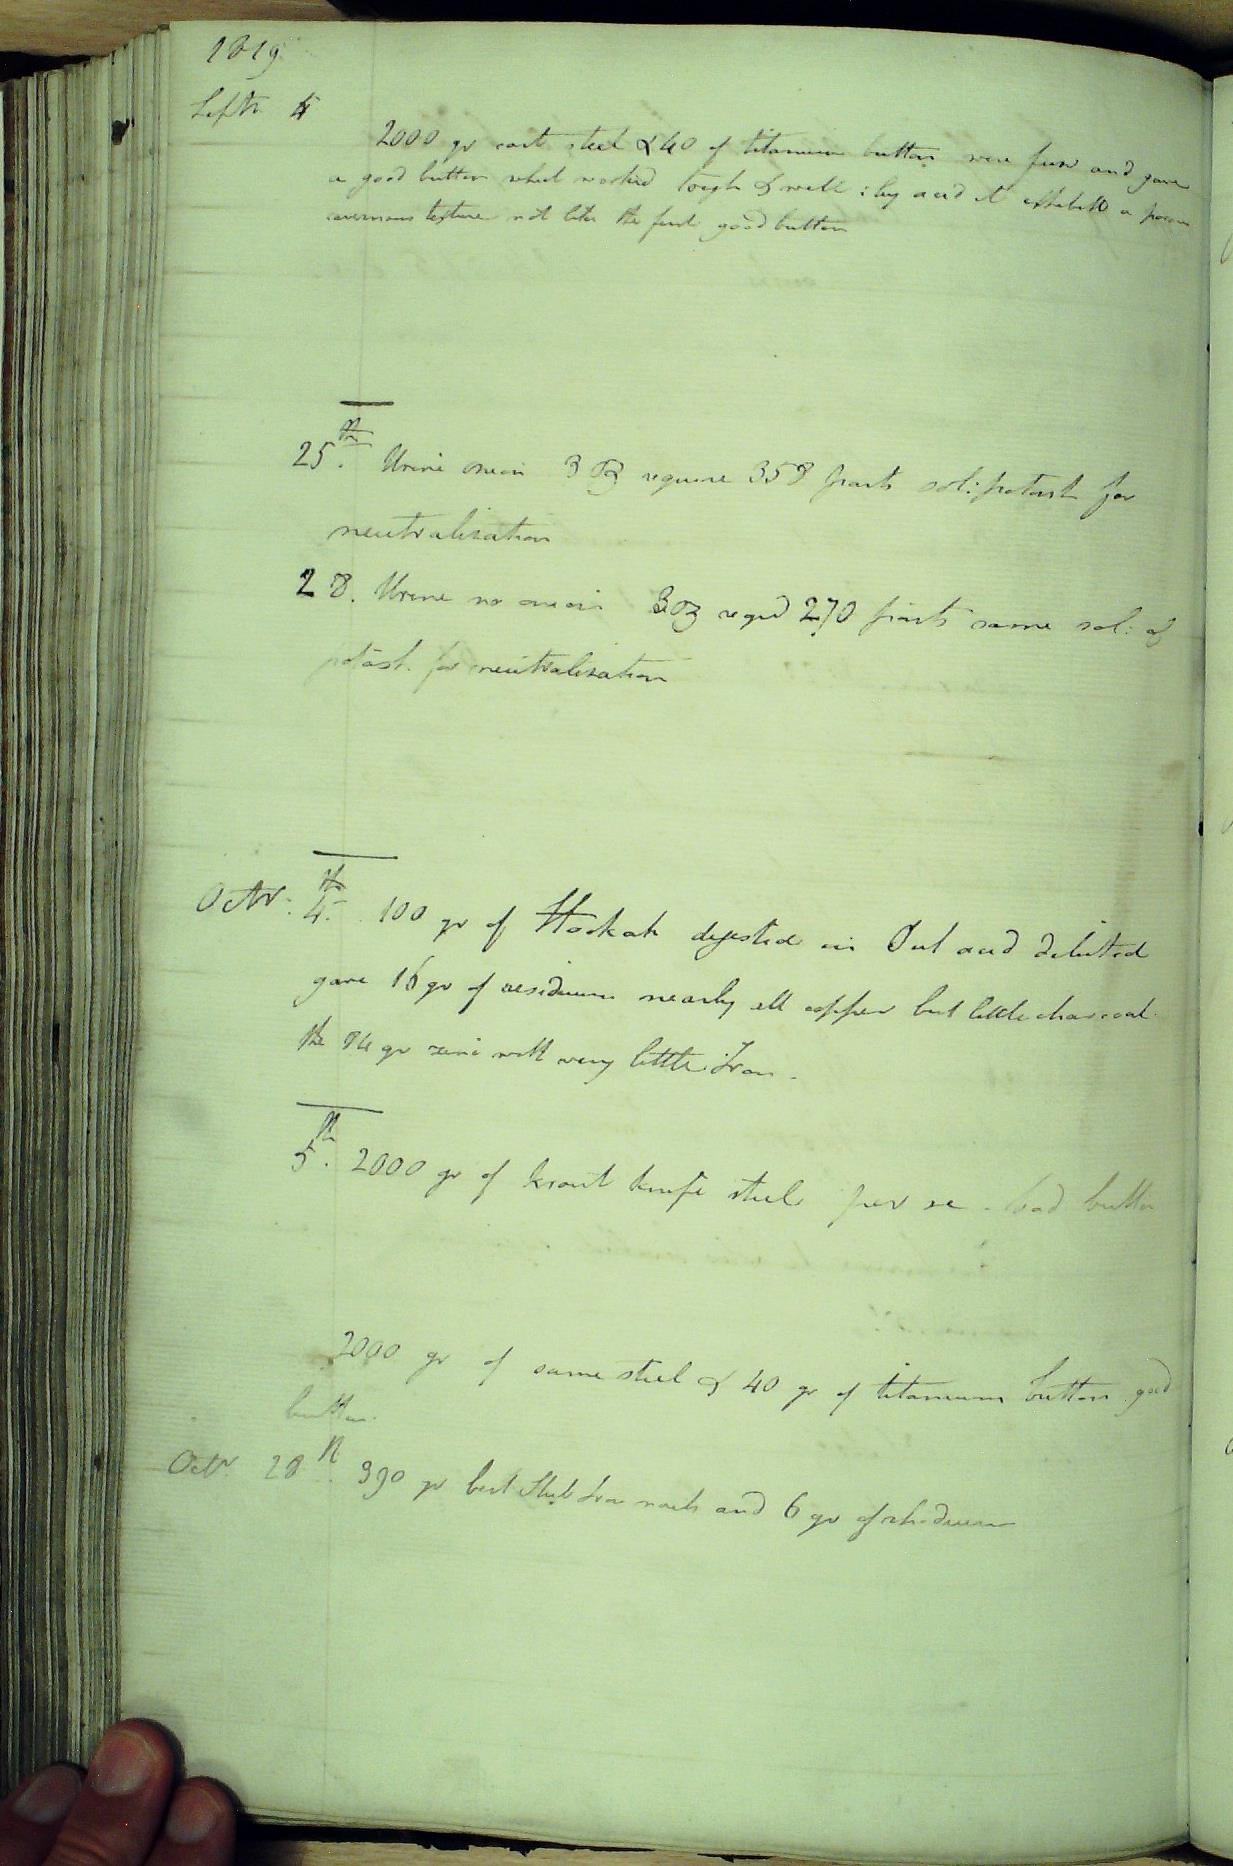 1819
Septr 4
2000 gr cast steel & 40 of titanium button were fused and gave
a good button which worked tough & well : by acid it exhibited a porous
cavernous texture not like the first good button
25th. Urine onion 3 oz require 358 parts sol: potash for
neutralisation
28. Urine no onion 3 oz reqd 270 parts same sol: of
potash for neutralisation
Octr. 4th. 100 gr of Hookah digested in Sul acid diluted
gave 16 gr of residuum nearly all copper but little charcoal
the 84 gr zinc with very little Iron.
5th. 2000 gr of knife steel per se - bad button
2000 gr of same steel & 40 gr of titanium button good
button.
Octr 28th. 990 gr best Stub Iron nails and 6 gr of rhodium